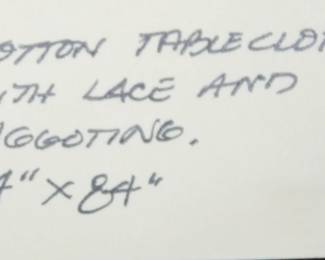 OTTON TABLECLO
TH LACE AND
GGOTING.
4" X 84"